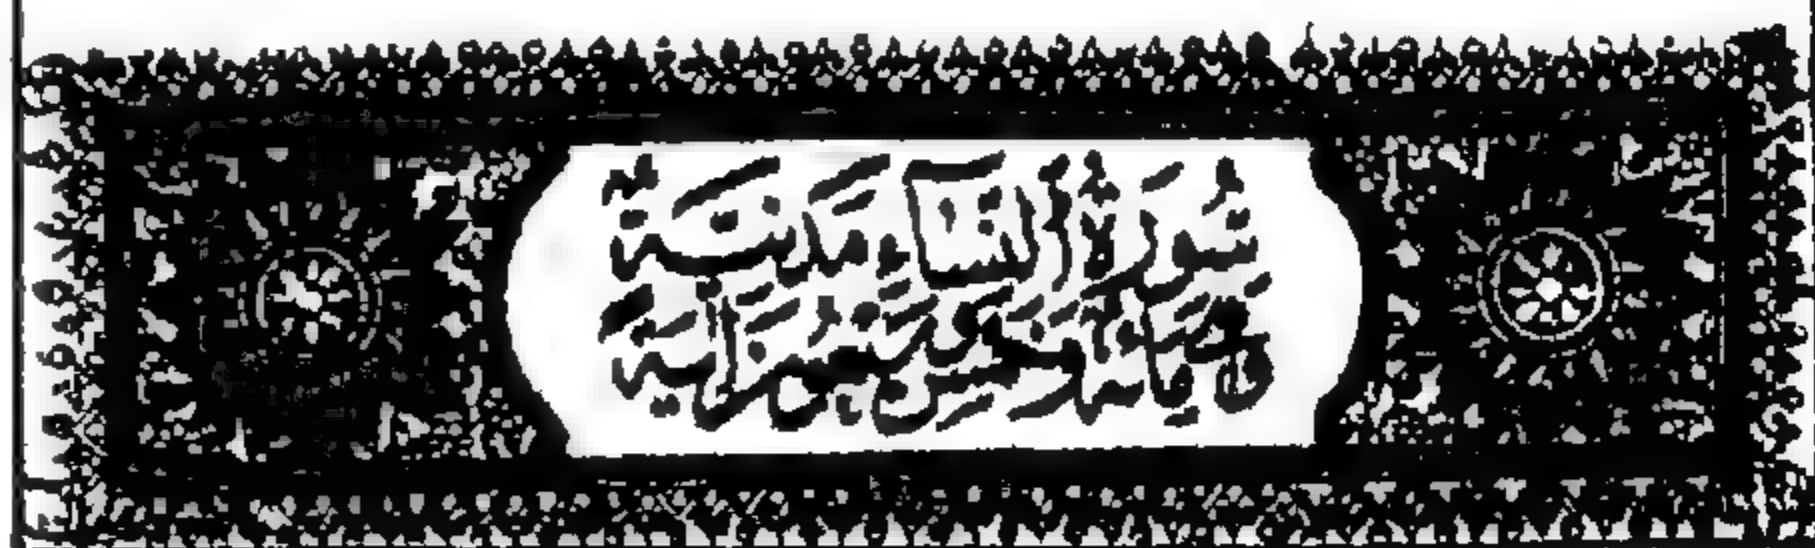 سُورَةُ النِّسَاءِ مَدَنِيَّةٌ
وَهِيَ مِائَةٌ وَخَمْسٌ وَسَبْعُونَ آيَةً